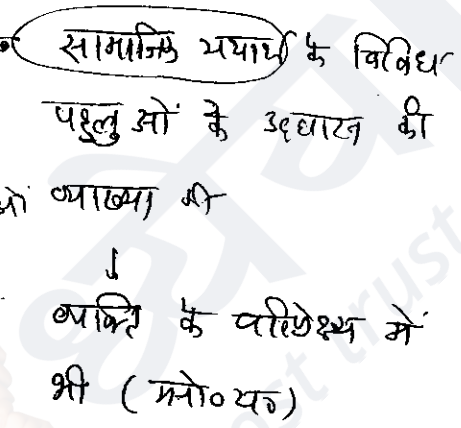 सामाजिक यथार्थ के विविध
पहलुओं के उद्घाटन की
व्याख्या की
↓
व्यक्ति के परिप्रेक्ष्य में
भी (मनो० य०)